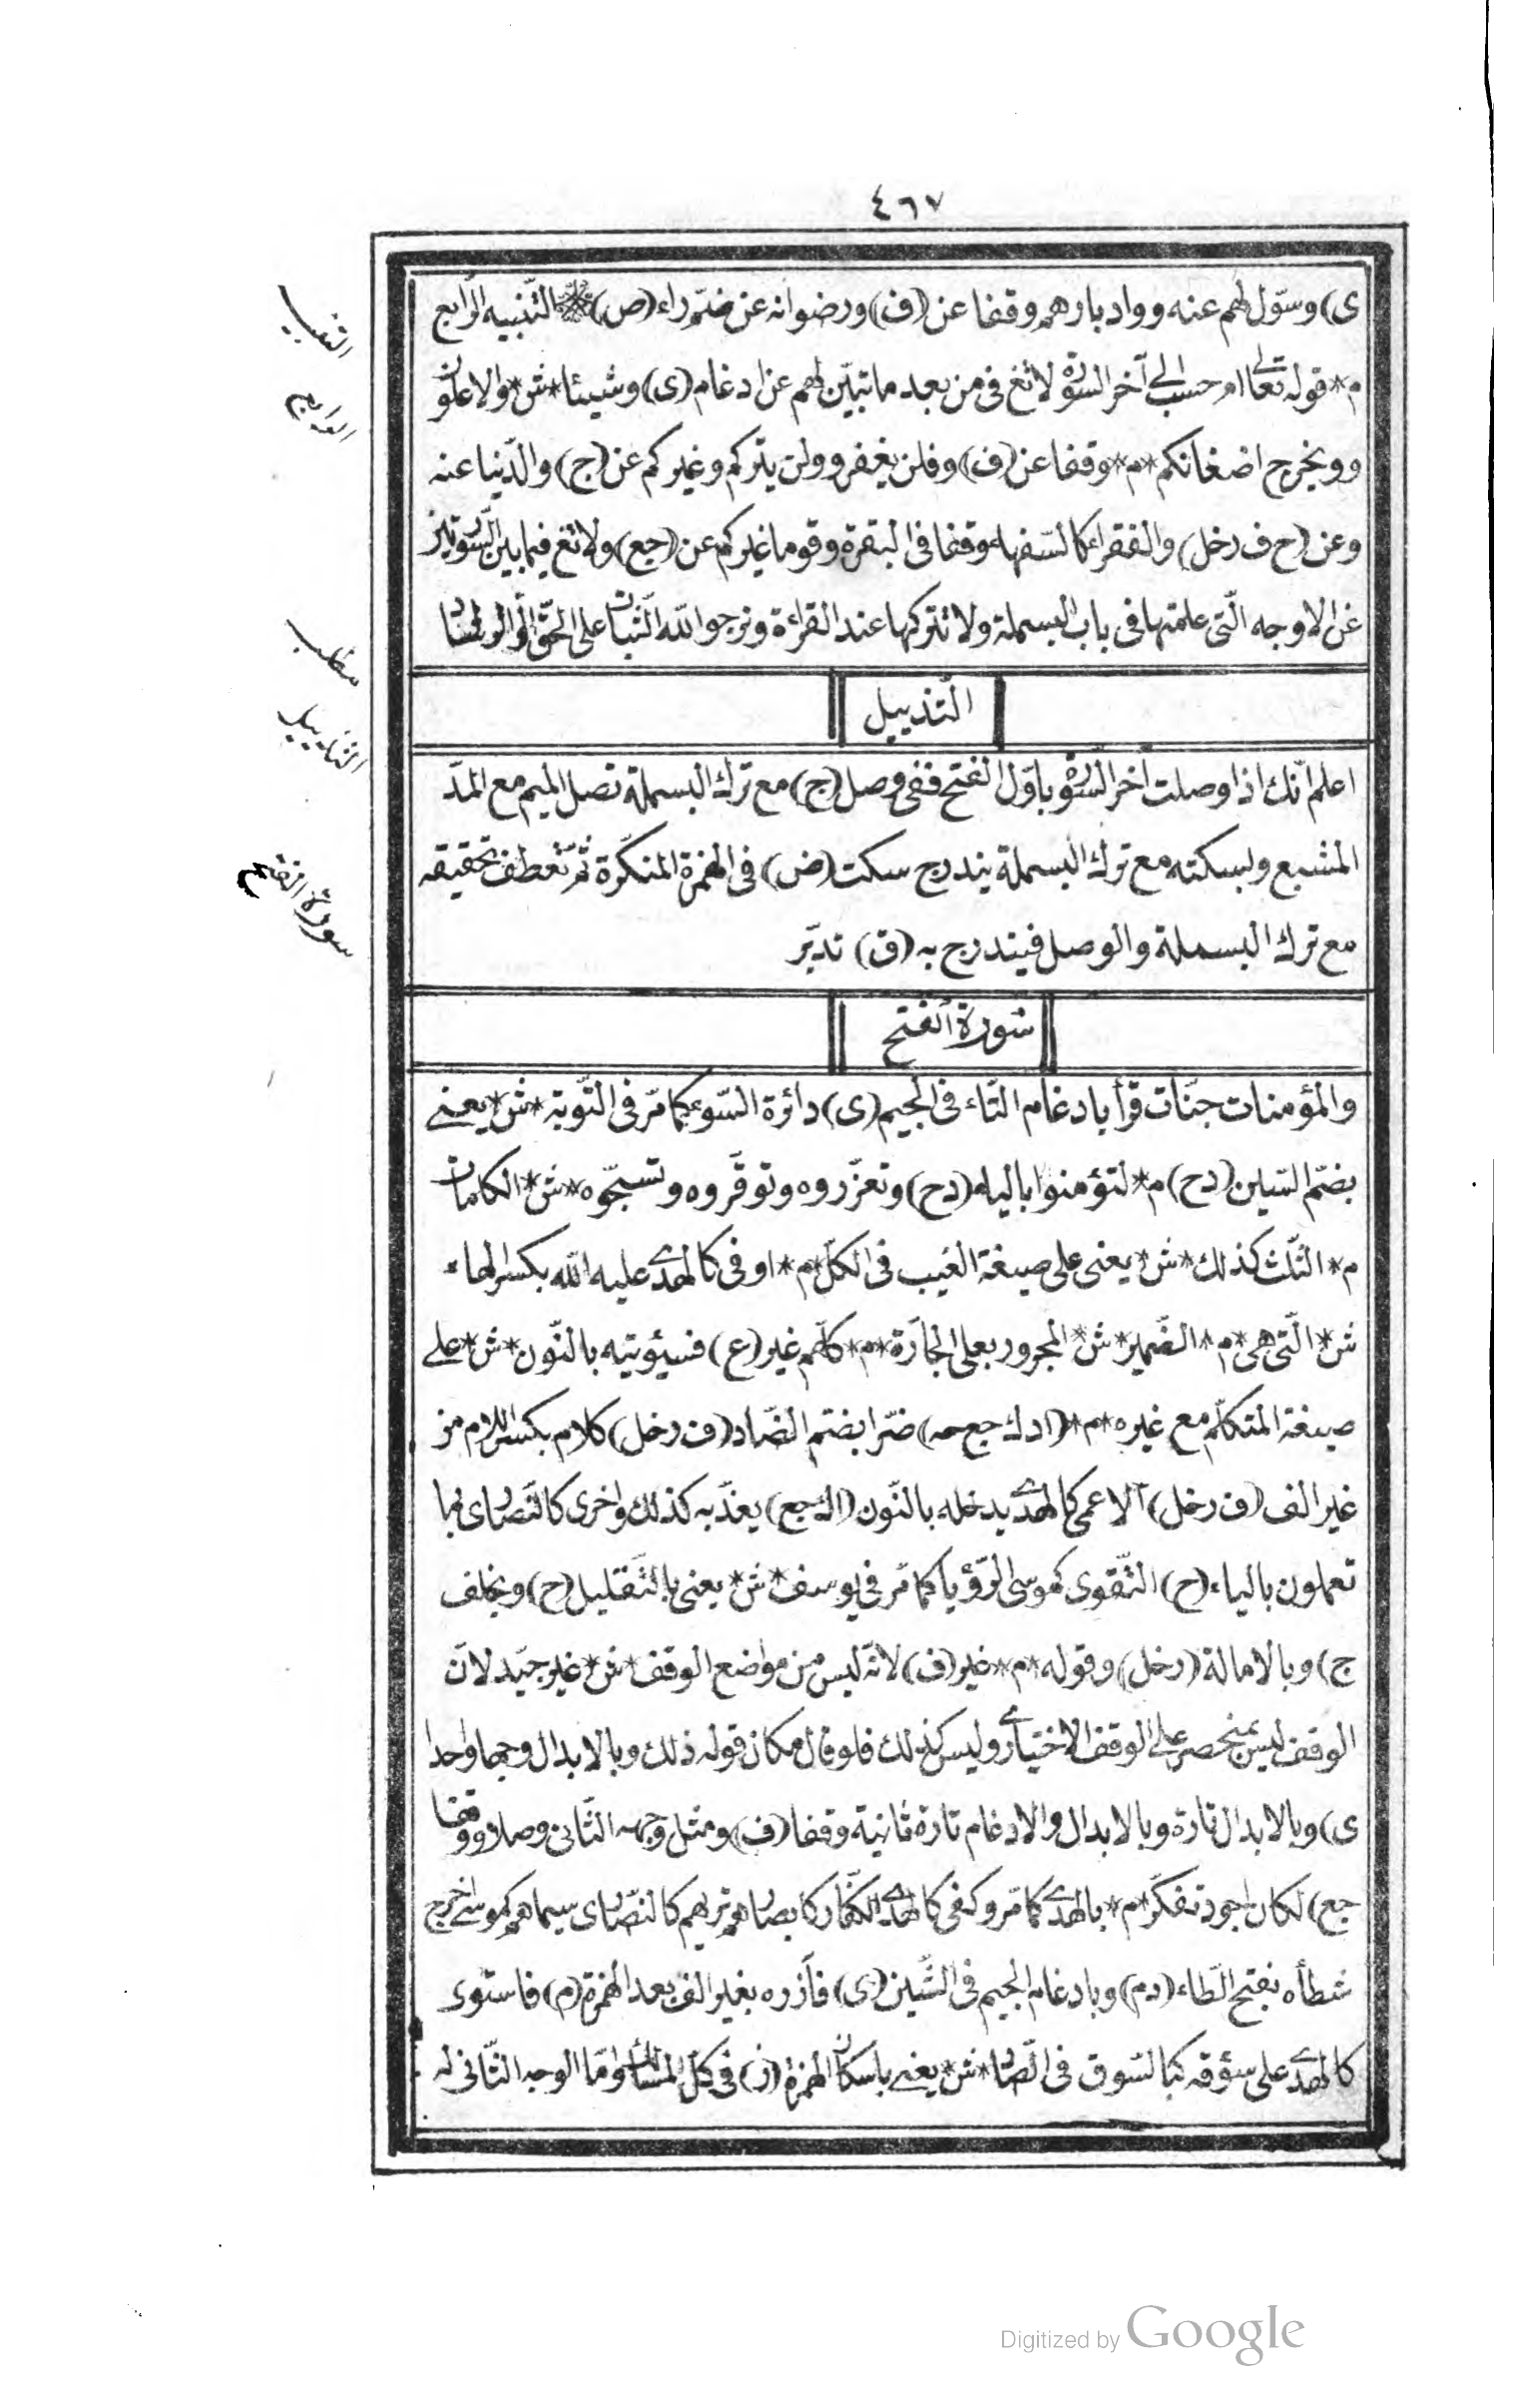 ٤٦٧
ى) وسوّل لهم عنه وو ادبارهم وقفا عن (ف) ورضوانه عن ضمّ راء (ص) التّنبيه الرّابع
م* قوله تعالى ام حسب الى آخر السّورة لا تغ فى من بعد ما تبيّن لهم عن ادغام (ى) وشيئا *ش* والاعلون
وو يخرج اضغانكم *م* وقفا عن (ف) وفلن يغفر وولن يتركم وغيركم عن (ج) والدّنيا عنه
وعن (ح ف رخل) والفقراء كالسّفهاء وقفا فى البقرة وقوما غيركم عن (جع) ولا تغ فيما بين السّورتين
عن الاوجه الّتى علمتها فى باب البسملة ولا تتركها عند القراءة ونرجو الله الثّبات على الحقّ
التّذييل
اعلم انّك اذا وصلت آخر السّورة باوّل الفتح ففى وصل (ج) مع ترك البسملة تصل الميم مع المدّ
المشبع وبسكته مع ترك البسملة يندرج سكت (ض) فى الهمزة المنكّرة ثمّ تعطف تحقيقه
مع ترك البسملة والوصل فيندرج به (ق) تدبّر
سورة الفتح
والمؤمنات جنّات قرأ بادغام التّاء فى الجيم (ى) دائرة السّوء كما مرّ فى التّوبة *ش* يعنى
بضمّ السّين (دح) م* لتؤمنوا بالياء (دح) وتعزّروه وتوقّروه وتسبّحوه *ش* الكلمات
م* الثّلث كذلك *ش* يعنى على صيغة الغيب فى الكلّ *م* اوفى كالهدى عليه الله بكسر الهاء
ش* الّتى هى *م* الضّمير *ش* المجرور بعلى الجارّة *م* كلّهم غير (ع) فسيؤتيه بالنّون *ش* على
صيغة المتكلّم مع غيره *م* (ادك جع حه) ضرّا بضمّ الضّاد (ف رخل) كلام بكسر اللام من
غير الف (ف رخل) الاعمى كالهدى يدخله بالنّون (اك جع) يعذّبه كذلك واخرى كالنّصارى بما
تعملون بالياء (ح) التّقوى كموسى الرّؤيا كما مرّ فى يوسف *ش* يعنى بالتّقليل (ح) وبخلف
ج) وبالامالة (رخل) وقوله *م* غير (ف) لانّه ليس من مواضع الوقف *ش* غير جيّد لانّ
الوقف ليس بمنحصر على الوقف الاختيارى وليس كذلك فلو قال مكان قوله ذلك وبالابدال وجها واحدا
ى) وبالابدال تارة وبالابدال والادغام تارة ثانية وقفا (ف) ومثل وجهه الثّانى وصلا ووقفا
جع) لكان اجود تفكّر *م* بالهدى كما مرّ وكفى كالهدى الكفّار كابصارهم تريهم كالنّصارى سيماهم كموسى اخرج
شطأه بفتح الطّاء (دم) وبادغام الجيم فى الشّين (ى) فآزره بغير الف بعد الهمزة (م) فاستوى
كالهدى على سؤقه كبالسّوق فى الصّاد *ش* يعنى باسكان الهمزة (ز) فى كلّ المسائل وامّا الوجه الثّانى له
التنبيه
الرابع
مطلب
التذييل
سورة الفتح
Digitized by Google